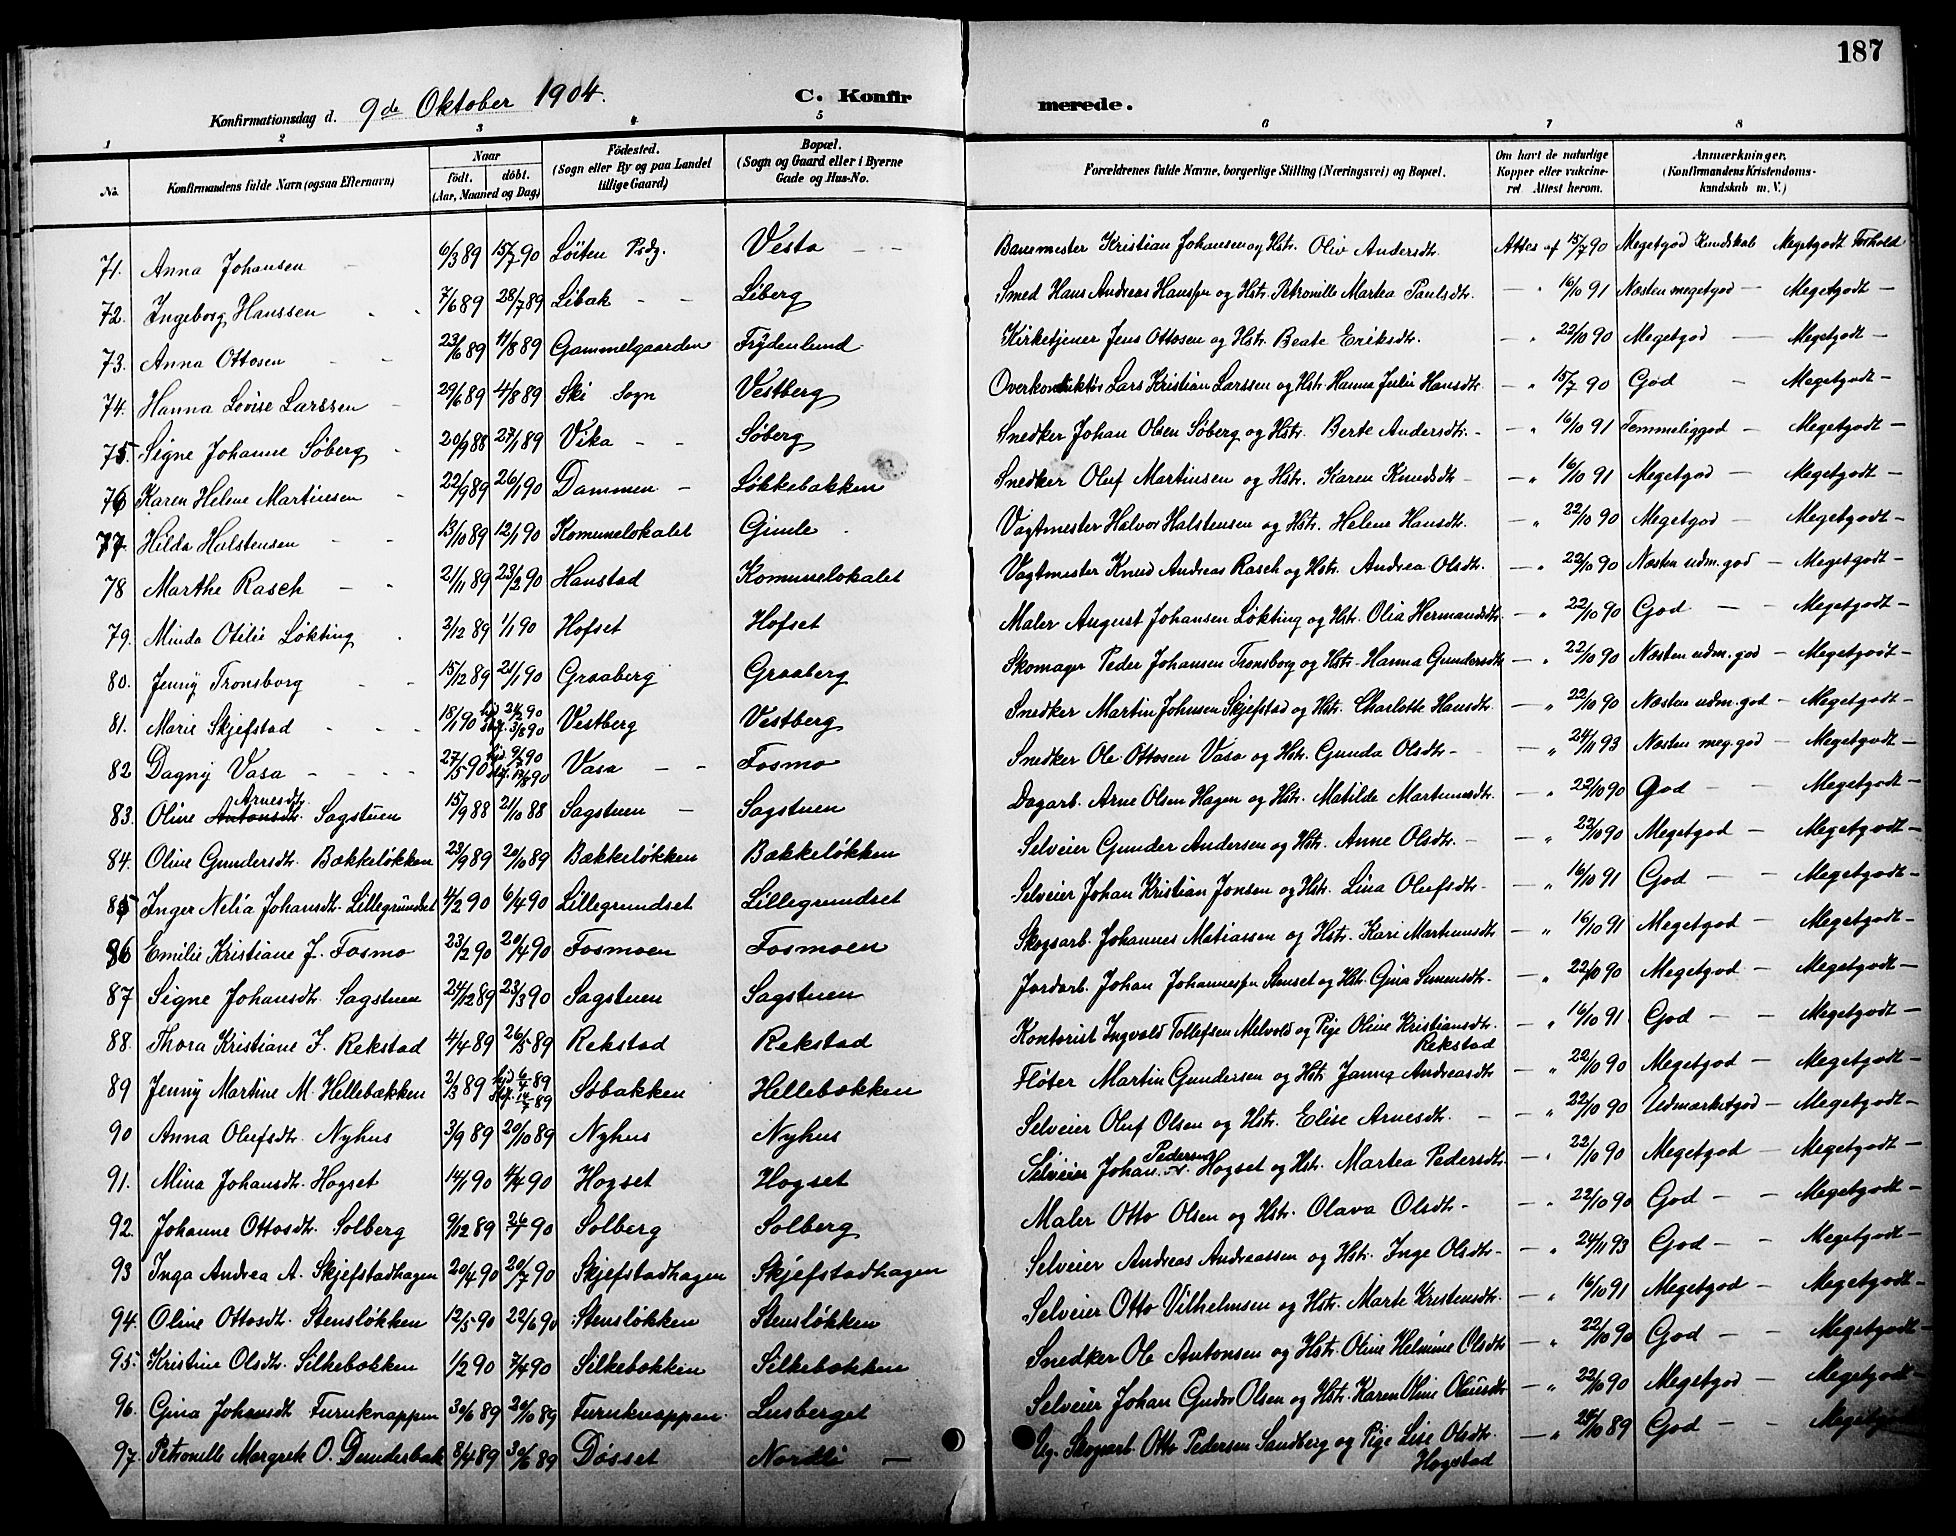 187
Konfirmationsdag d. 9de Oktober 1904. C. Konfirmerede.
1 2 3 4 5 6 7 8
No. Konfirmandens fulde Navn (ogsaa Efternavn) Naar født. døbt. (Aar, Maaned og Dag) Fødested. (Sogn eller By og paa Landet tillige Gaard) Bopæl. (Sogn og Gaard eller i Byerne Gade og Hus-No.) Forældrenes fulde Navne, borgerlige Stilling (Næringsvei) og Bopæl. Om havt de naturlige Kopper eller vakcineret Attest herom. Anmærkninger. (Konfirmandens Kristendomskundskab m. V.)
71. Anna Johansen 6/3 89 15/7 90 Løiten Psdg. Vesta Banemester Kristian Johansen og Hstr. Oliv Andersdtr. Attes af 15/7 90 Megetgod Kundskab Megetgodt Forhold
72. Ingeborg Hanssen 7/6 89 28/7 89 Libak Liberg Smed Hans Andreas Hanssen og Hstr. Petronille Martea Paulsdtr. — " 16/10 91 Næsten megetgod — Megetgodt —
73. Anna Ottosen 23/6 89 11/8 89 Gammelgaarden Frydenlund Kirketjener Jens Ottosen og Hstr. Beate Eriksdtr. — " 22/10 90 Megetgod — Megetgodt —
74. Hanna Lovise Larssen 29/6 89 4/8 89 Ski Sogn Vestberg Overkonduktør Lars Kristian Larssen og Hstr. Hanna Julie Hansdtr. — " 15/7 90 God — Megetgodt —
75. Signe Johanne Søberg 20/9 88 27/1 89 Vika Søberg Snedker Johan Olsen Søberg og Hstr. Berte Andersdtr. — " 16/10 91 Temmeliggod — Megetgodt —
76 Karen Helene Martinsen 22/9 89 26/1 90 Dammen — Løkkebakken Snedker Oluf Martinsen og Hstr. Karen Knudsdtr — " 16/10 91 Megetgod — Megetgodt —
77. Hilda Halstensen 13/10 89 12/1 90 Komunelokalet Gimle Vagtmester Halvor Halstensen og Hstr. Helene Hansdtr. — " 22/10 90 Megetgod — Megetgodt —
78 Marthe Rasch 21/11 89 23/2 90 Hanstad Komunelokalet Vagtmester Knud Andreas Rasch og Hstr. Andrea Olsdtr. — " 22/10 90 Næsten udm. god — Megetgodt —
79. Minda Otilie Løkting 2/12 89 1/1 90 Hofset Hofset Maler August Johansen Løkting og Hstr. Olia Hermansdtr. — " 22/10 90 God — Megetgodt —
80. Jenny Tronsborg 15/12 89 21/1 90 Graaberg Graaberg Skomager Peder Johansen Tronsborg og Hstr. Hanna Gundersdtr — " 22/10 90 Næsten udm. god — Megetgodt —
81. Marie Skjefstad 18/1 90 hjd 24/2 90 Stf. 3/8 90 Vestberg Vestberg Snedker Martin Johnsen Skjefstad og Hstr. Charlotte Hansdtr. — " 22/10 90 Næsten udm. god — Megetgodt —
82 Dagny Vasa 27/5 90 hjd 9/7 90 Stf. 17/8 90 Vasa Fosmo Snedker Ole Ottosen Vasa og Hstr. Gunda Olsdtr — — " 24/11 93 Næsten meg. god — Megetgodt —
83. Oline Antonsdtr. Arnesdtr. Sagstuen 15/9 88 21/10 88 Sagstuen — Sagstuen Dagarb. Arne Olsen Hagen og Hstr. Matilde Martinusdtr. — " 22/10 90 God — Megetgodt —
84. Oline Gundersdtr. Bækkeløkken 23/9 89 20/10 89 Bækkeløkken Bækkeløkken Selveier Gunder Andersen og Hstr. Anne Olsdtr. — — " 22/10 90 Megetgod — Megetgodt —
85 Inger Nelia Johansdtr. Lillegrundset 14/2 90 6/4 90 Lillegrundset Lillegrundset Selveier Johan Kristian Jonsen og Hstr. Lina Olufsdtr — — " 16/10 91 God — Megetgodt —
86 Emilie Kristiane J. Fosmo 23/2 90 20/4 90 Fosmoen Fosmoen Skogsarb. Johannes Matiassen og Hstr. Kari Martinusdtr — " 16/10 91 Megetgod — Megetgodt —
87 Signe Johansdtr. Sagstuen 24/12 89 23/3 90 Sagstuen Sagstuen Jordarb. Johan Johannessen Stenset og Hstr. Gina Simensdtr. — " 22/10 90 Megetgod — Megetgodt —
88. Thora Kristiane I. Rekstad 4/4 89 26/5 89 Rekstad Rekstad Kontorist Ingvald Tollefsen Melvold og Pige Oline Kristiansdtr. Rekstad — " 16/10 91 God — Megetgodt —
89 Jenny Martine M. Hellebækken 2/3 89 hjd 6/4 89 Stf. 14/7 89 Søbakken Hellebækken Fløter Martin Gundersen og Hstr. Janna Andreasdtr — " 22/10 90 Megetgod — Megetgodt —
90 Anna Olufsdtr. Nyhus 3/9 89 20/10 89 Nyhus Nyhus Selveier Oluf Olsen og Hstr. Elise Arnesdtr. — — " 22/10 90 Udmærketgod — Megetgodt —
91. Mina Johansdtr. Hogset 14/1 90 4/4 90 Hogset Hogset Selveier Johan Pedersen Hogset og Hstr. Martea Pedersdtr. — " 22/10 90 Megetgod — Megetgodt —
92. Johanne Ottosdtr. Solberg 9/12 89 26/1 90 Solberg Solberg Maler Otto Olsen og Hstr. Olava Olsdtr — — " 22/10 90 God — Megetgodt —
93 Inga Andrea A. Skjefstadhagen 20/4 90 20/7 90 Skjefstadhagen Skjefstadhagen Selveier Andreas Andreassen og Hstr. Inge Olsdtr — — " 24/11 93 God — Megetgodt —
94. Oline Ottosdtr. Stensløkken 12/5 90 22/6 90 Stensløkken Stensløkken Selveier Otto Vilhelmsen og Hstr. Marte Kristensdtr. — " 16/10 91 Megetgod — Megetgodt —
95. Kristine Olsdtr. Silkebækken 1/2 90 7/4 90 Silkebækken Silkebækken Snedker Ole Antonsen og Hstr. Oline Helmine Olsdtr — " 22/10 90 God — Megetgodt —
96. Gina Johansdtr Furuknappen 30/6 89 20/10 89 Furuknappen Lusberget Selveier Johan Gudor Olsen og Hstr. Karen Oline Olausdtr — " 22/10 90 Megetgod — Megetgodt —
97. Petronille Margrete O. Dunderbak 8/4 89 30/6 89 Døsset Nordli — Ug. Skogarb. Otto Pedersen Sandberg og Pige Lise Olsdtr. Hogstad — " 24/10 89 God — Megetgodt